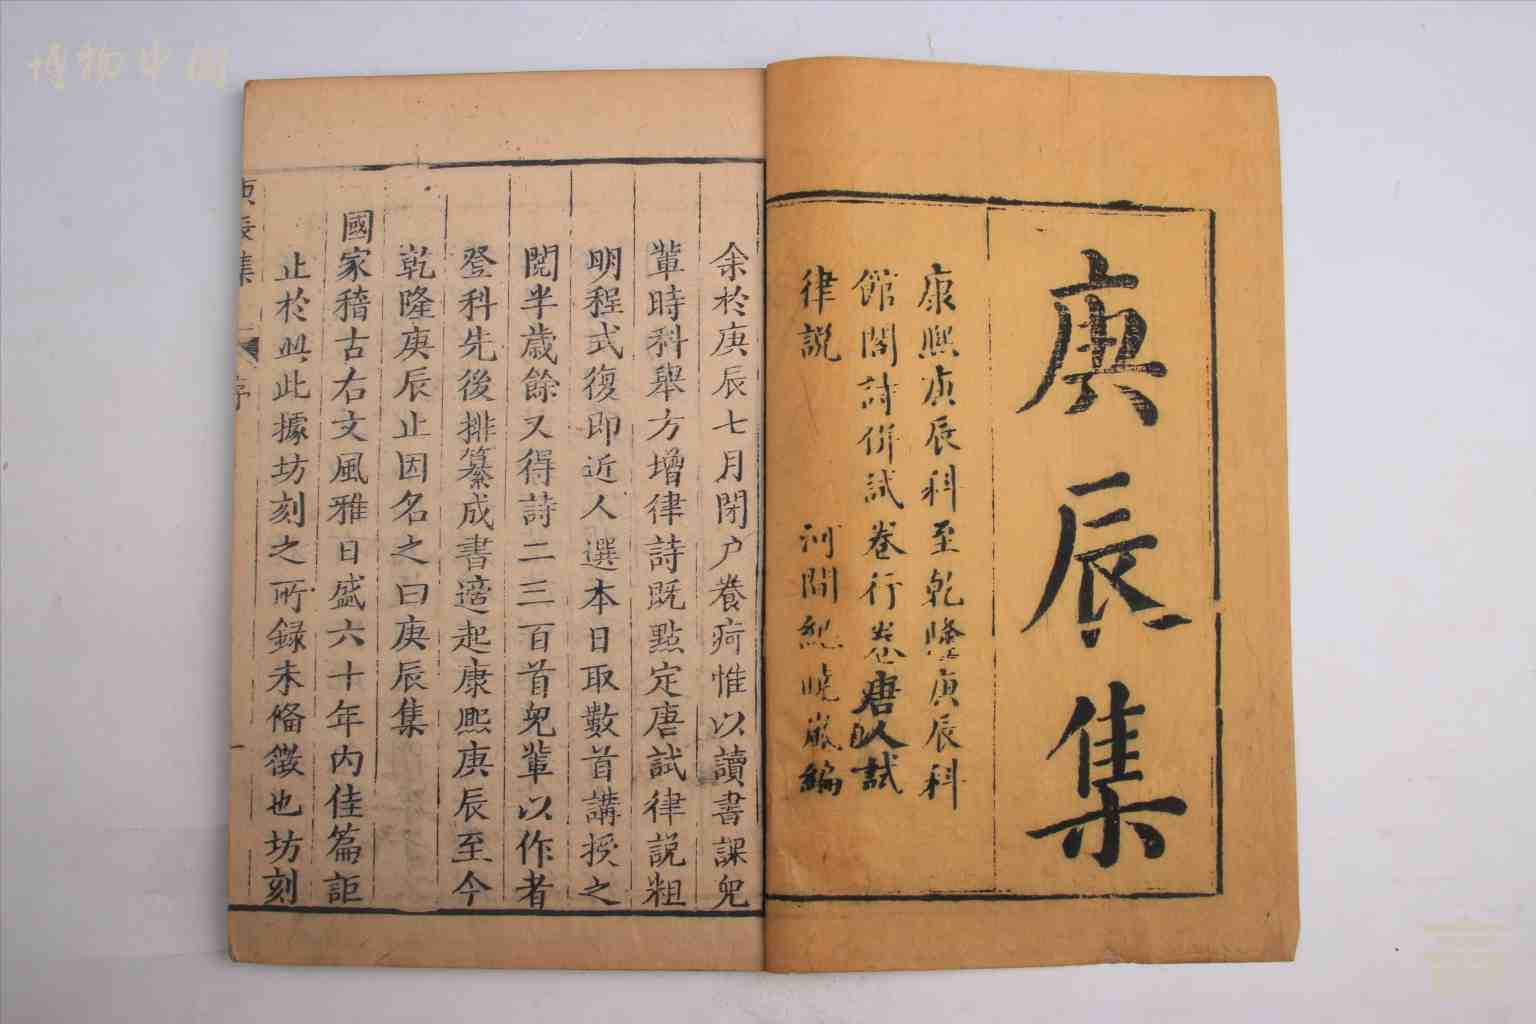 博物中國
庚辰集
康熙庚辰科至乾隆庚辰科
館閣詩併試卷行卷唐人試
律説
河間紀曉嵐編
余於庚辰七月閉户養疴惟以讀書課兒
輩時科舉方增律詩既點定唐試律説粗
明程式復即近人選本日取數首講授之
閲半歲餘又得詩二三百首兒輩以作者
登科先後排纂成書適起康熙庚辰至今
乾隆庚辰止因名之曰庚辰集
國家稽古右文風雅日盛六十年内佳篇詎
止於與此據坊刻之所録未俻徵也坊刻
庚辰集
序
一